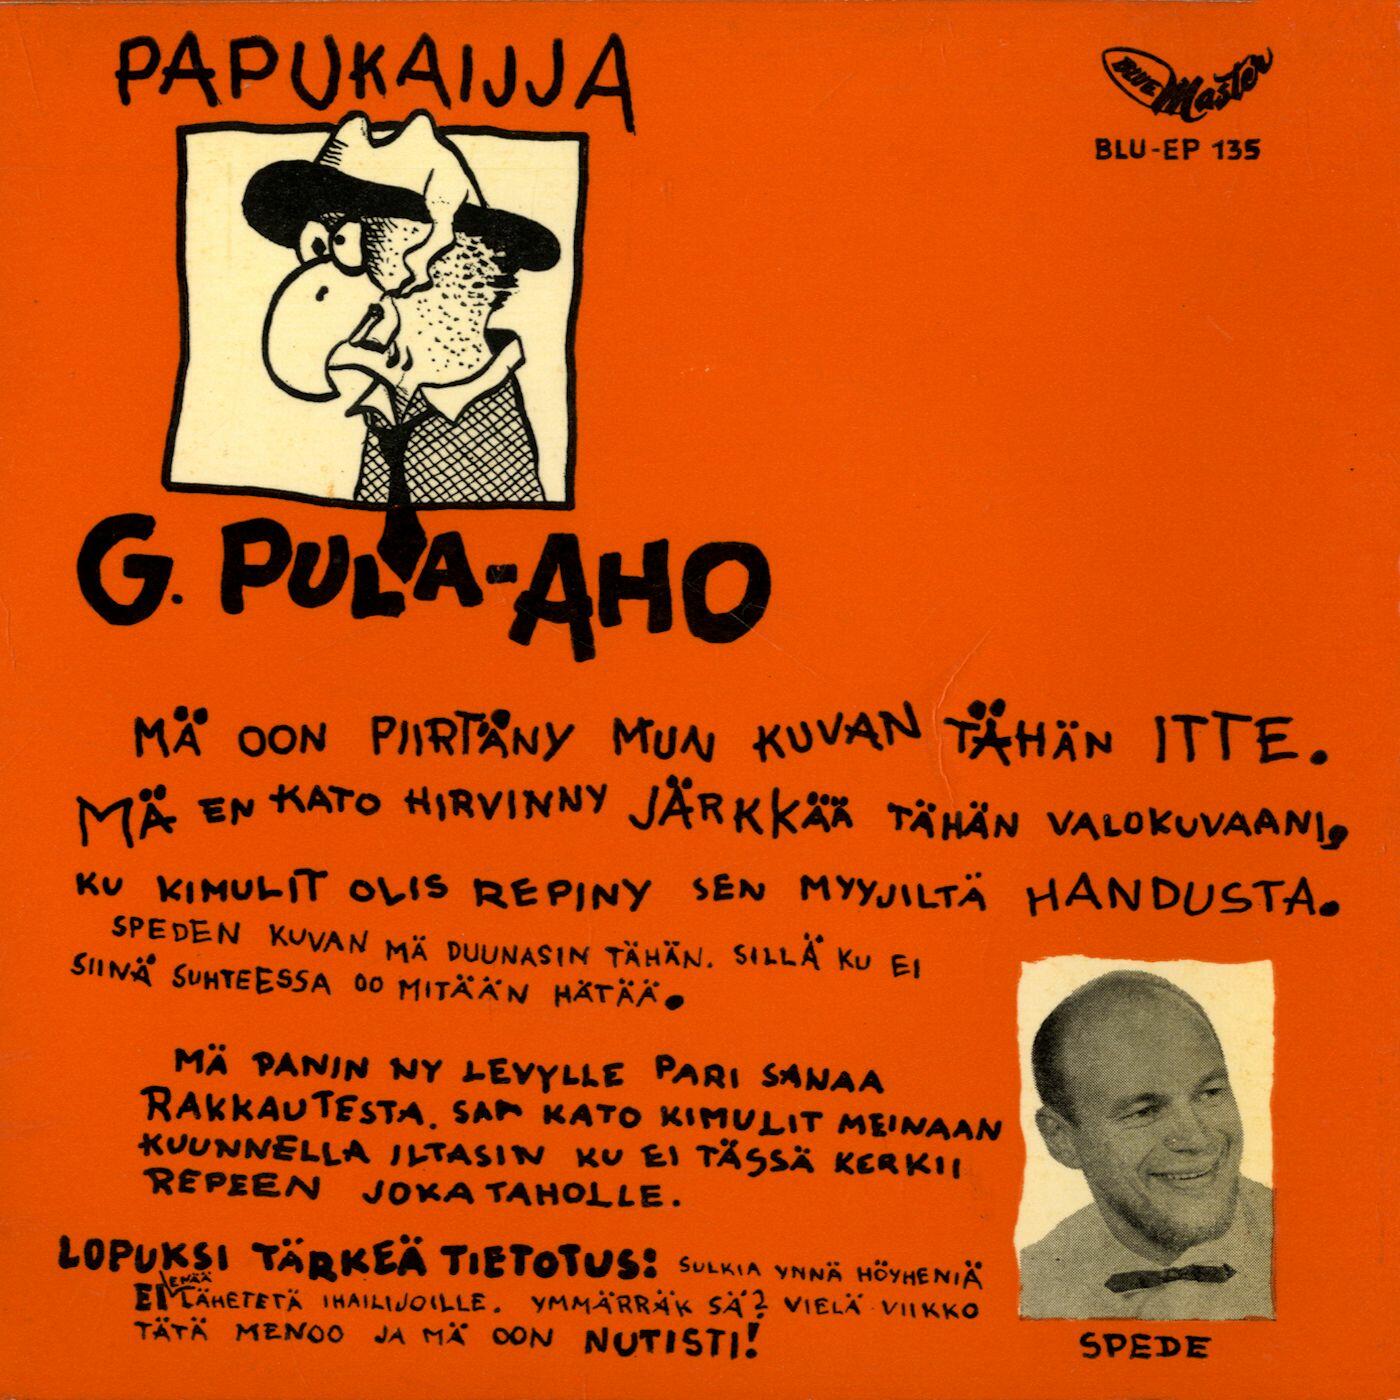 PAPUKAIJJA
BLUE Master
BLU-EP 135
G. PULA-AHO
MÄ OON PIIRTÄNY MUN KUVAN TÄHÄN ITTE.
MÄ EN KATO HIRVINNY JÄRKKÄÄ TÄHÄN VALOKUVAANI,
KU KIMULIT OLIS REPINY SEN MYYJILTÄ HANDUSTA.
SPEDEN KUVAN MÄ DUUNASIN TÄHÄN. SILLÄ KU EI
SIINÄ SUHTEESSA OO MITÄÄN HÄTÄÄ.
MÄ PANIN NY LEVYLLE PARI SANAA
RAKKAUTESTA. SAA KATO KIMULIT MEINAAN
KUUNNELLA ILTASIN KU EI TÄSSÄ KERKII
REPEEN JOKA TAHOLLE.
LOPUKSI TÄRKEÄ TIETOTUS: SULKIA YNNÄ HÖYHENIÄ
EI ENÄÄ LÄHETETÄ IHAILIJOILLE. YMMÄRRÄK SÄ? VIELÄ VIIKKO
TÄTÄ MENOO JA MÄ OON NUTISTI!
SPEDE